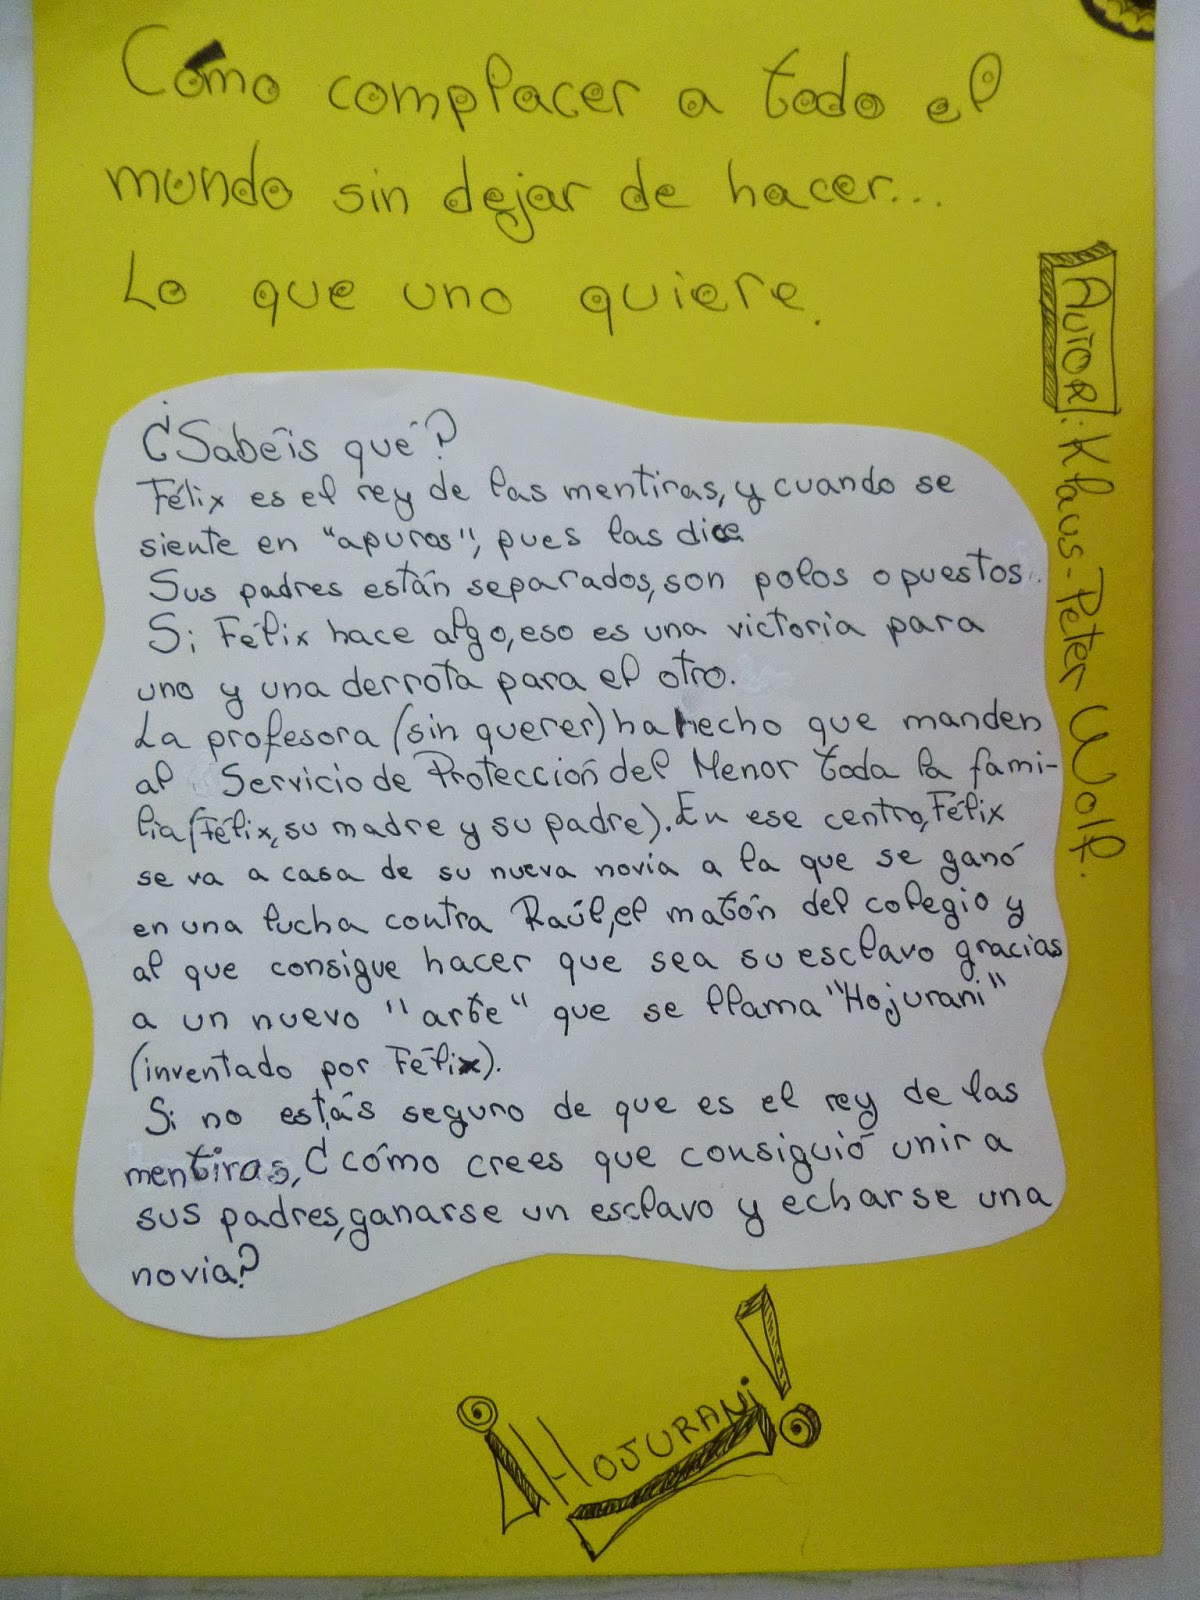 Cómo complacer a todo el
mundo sin dejar de hacer...
Lo que uno quiere.
AUTOR: Klaus-Peter Wolf.
¿Sabéis qué?
Félix es el rey de las mentiras, y cuando se
siente en "apuros", pues las dice.
Sus padres están separados, son polos opuestos..
Si Félix hace algo, eso es una victoria para
uno y una derrota para el otro.
La profesora (sin querer) ha hecho que manden
al Servicio de Protección del Menor toda la fami-
lia (Félix, su madre y su padre). En ese centro, Félix
se va a casa de su nueva novia a la que se ganó
en una lucha contra Raúl, el matón del colegio y
al que consigue hacer que sea su esclavo gracias
a un nuevo "arte" que se llama "Hojurani"
(inventado por Félix).
Si no estás seguro de que es el rey de las
mentiras, ¿cómo crees que consiguió unir a
sus padres, ganarse un esclavo y echarse una
novia?
¡HOJURANi!